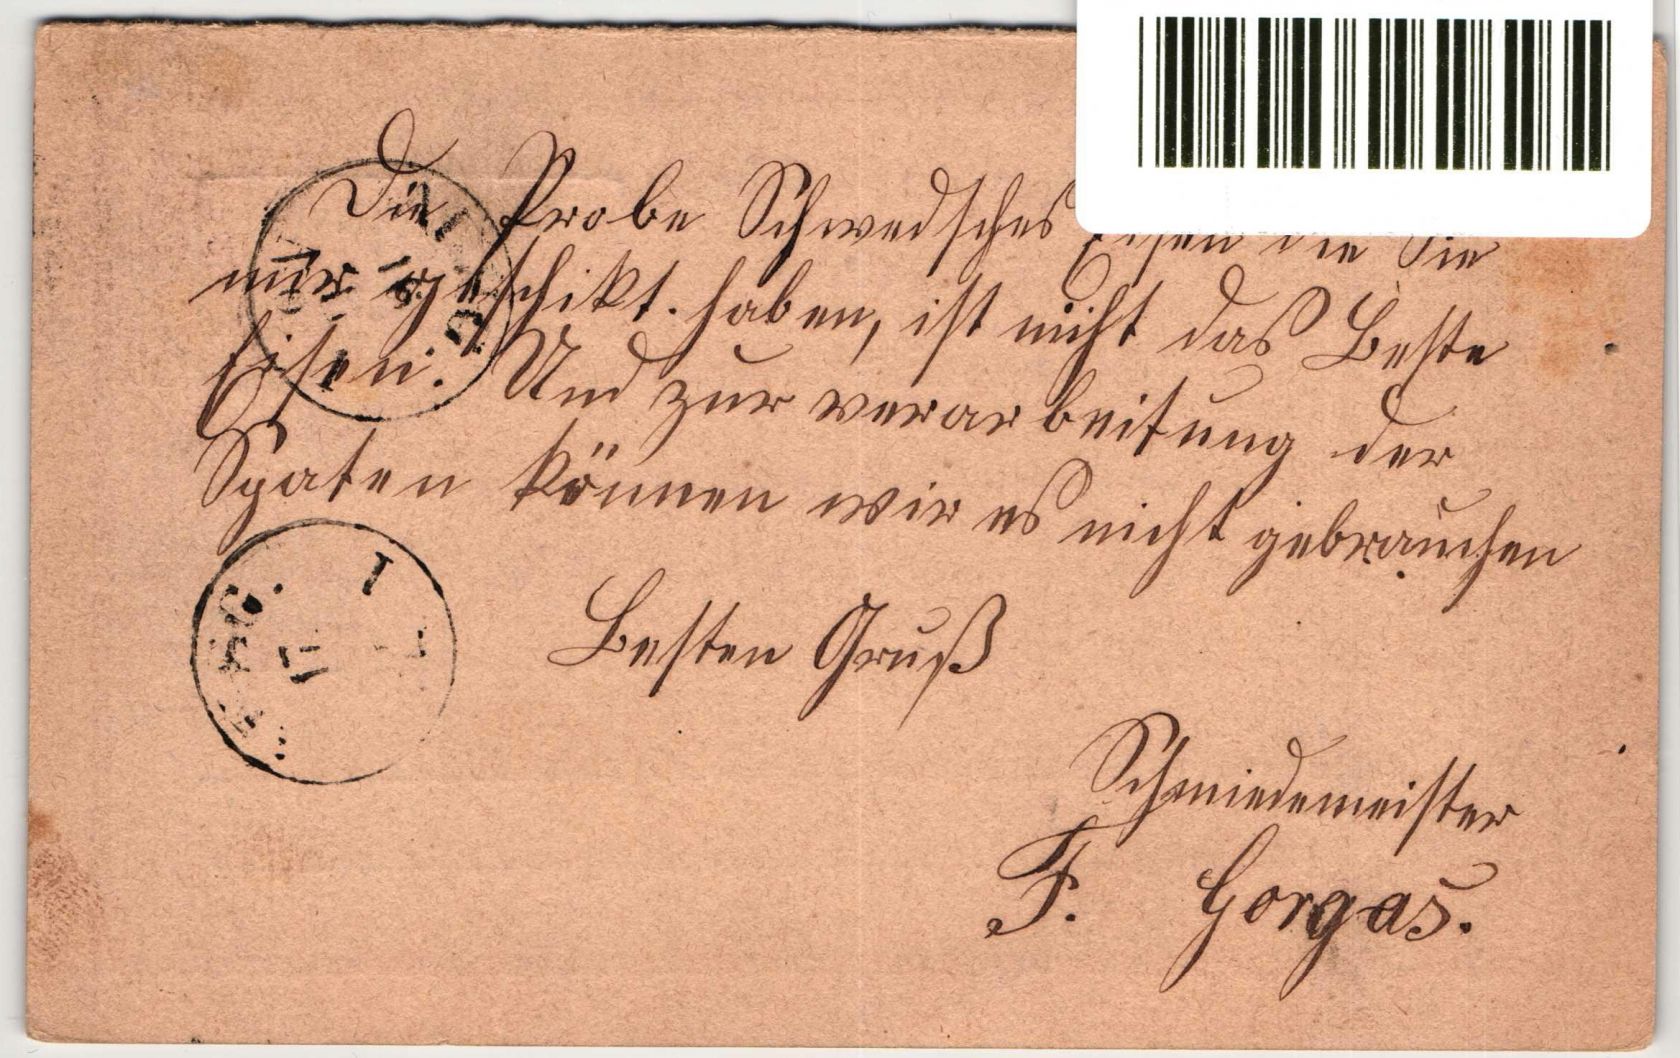 Die Probe Schwedsches Eisen die Sie
mir geschikt. haben, ist nicht das Beste
Eisen. Und zur verarbeitung der
Spaten können wir es nicht gebrauchen
Besten Gruß
Schmiedemeister
F. Gorgas.